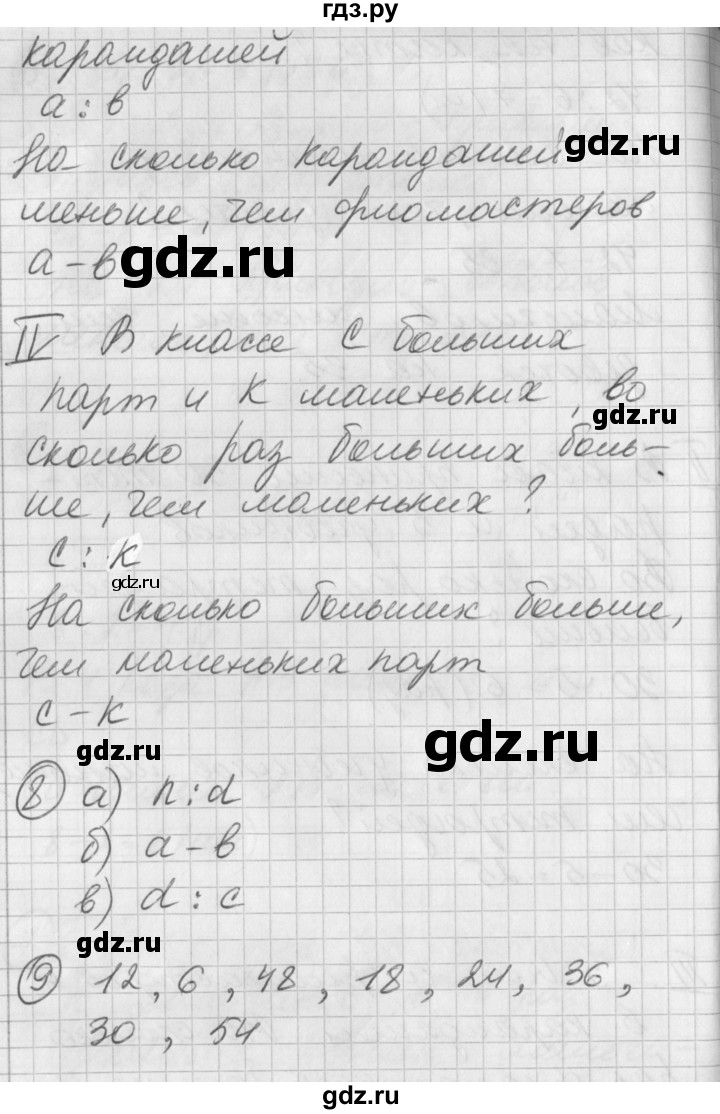 гдз.ру
карандашей
а : в
На сколько карандашей
gdz.ru
меньше, чем фломастеров
а - в
gdz.ru
IV В классе с больших
парт и к маленьких, во
gdz.ru
сколько раз больших боль-
ше, чем маленьких?
с : к
gdz.ru
На сколько больших больше,
чем маленьких парт
с - к
gdz.ru
gdz.ru
8 а) n : d
б) а - в
в) d : c
gdz.ru
9 12, 6, 48, 18, 24, 36,
30, 54
gdz.ru